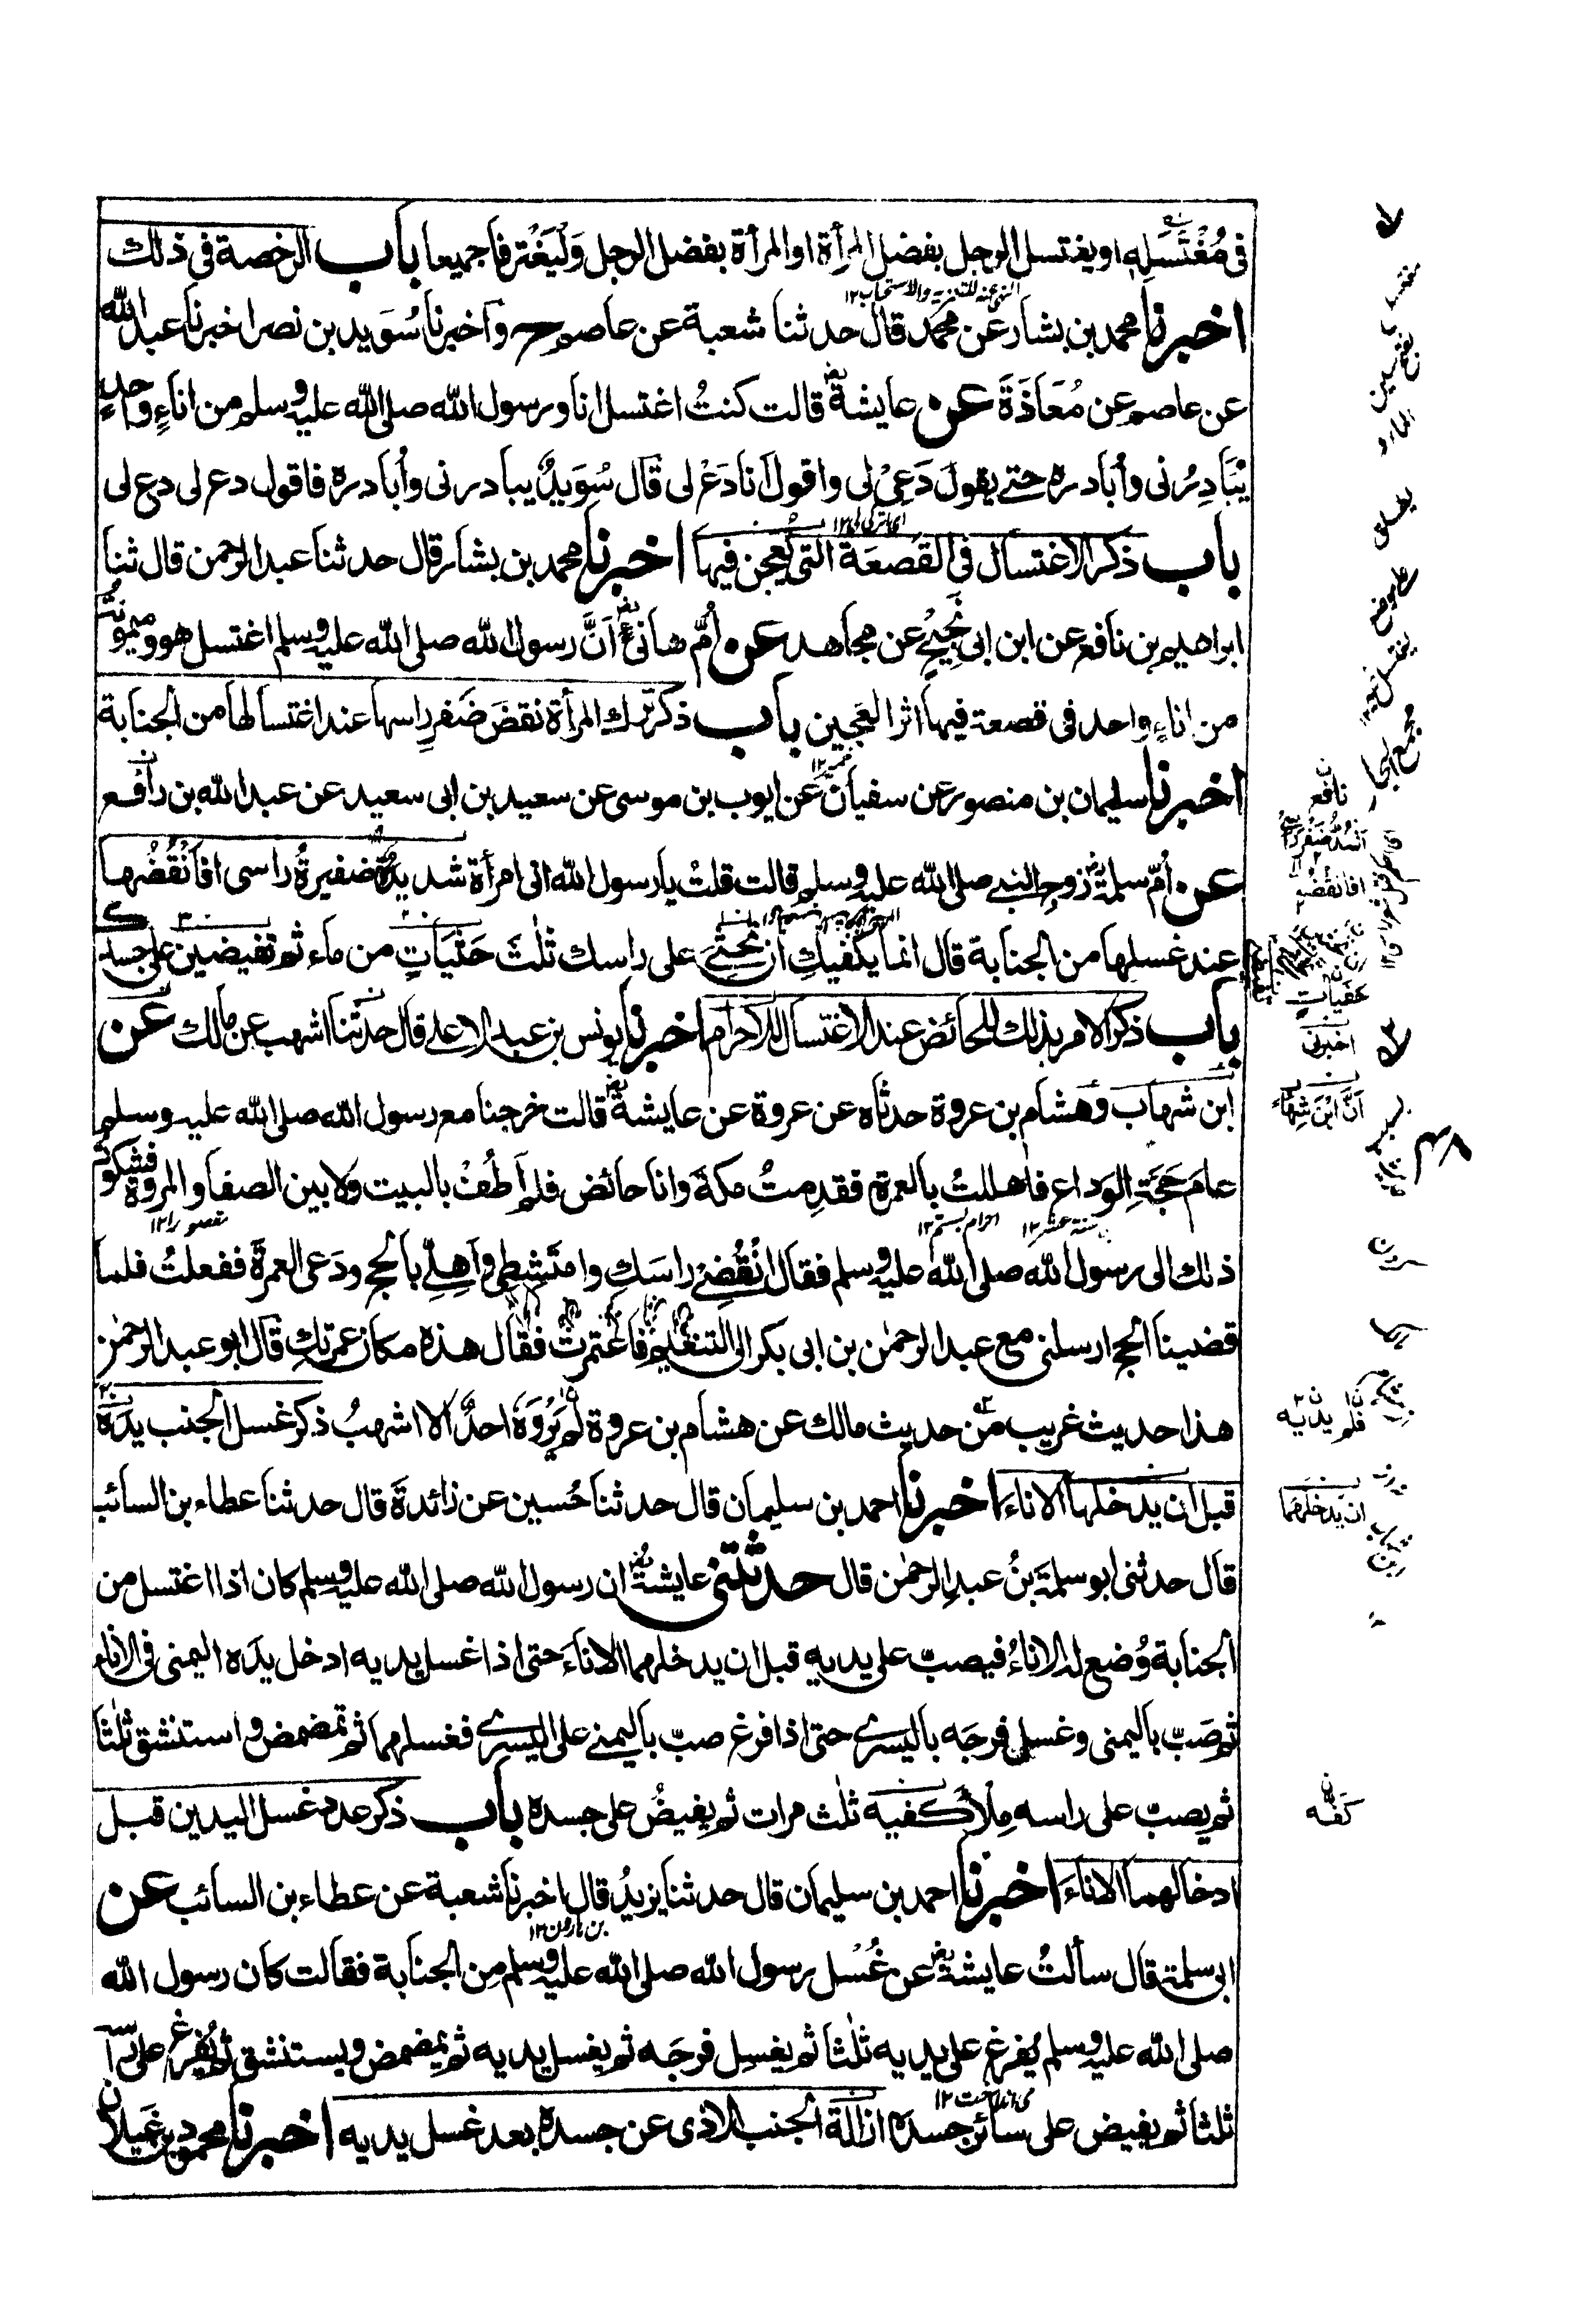 فى مُغْتَسَلِه او يغتسل الرجل بفضل المرأة او المرأة بفضل الرجل وَلْيَغْترفا جميعا باب الرخصة فى ذلك
اخبرنا محمد بن بشار عن محمد قال حدثنا شعبة عن عاصم ح و اخبرنا سُوَيد بن نصر اخبرنا عبد الله
عن عاصم عن مُعَاذَةَ عن عايشة قالت كنتُ اغتسل انا ورسول الله صلى الله عليه وسلم من اناءٍ واحدٍ
يُبَادِرُنى وأبادره حتے يقول دَعِىْ لى واقول انا دَعْ لى قال سُوَيدٌ يبادرنى وأُبادره فاقول دع لى دع لى
باب ذكر الاغتسال فى القَصعَة التى يُعجن فيها اخبرنا محمد بن بشار قال حدثنا عبد الرحمن قال ثنا
ابراهيم بن نافع عن ابن ابى نَجِيْحٍ عن مجاهد عن أمّ هانئ أَنَّ رسول الله صلى الله عليه وسلم اغتسل هو وميمونة
من اناءٍ واحد فى قصعة فيها اثر العَجِين باب ذكر ترك المرأة نقضَ ضَفرِ راسها عند اغتسالها من الجنابة
اخبرنا سليمان بن منصور عن سفيان عن ايوب بن موسى عن سعيد بن ابى سعيد عن عبد الله بن رافع
عن أمّ سلمة زوج النبے صلى الله عليه وسلم قالت قلتُ يارسول الله انى امرأة شديدةٌ ضفيرةُ راسى افانْقُضُها
عند غسلها من الجنابة قال انما يكفيكِ ان تحثے على راسك ثلٰثَ حَثَيَاتٍ من ماء ثم تفيضين على جسدك
باب ذكر الامر بذلك للحائض عند الاغتسال للاحرام اخبرنا يونس بن عبد الاعلى قال حدثنا اشهب عن مالك عن
ابن شهاب وهشام بن عروة حدثاه عن عروة عن عايشة قالت خرجنا مع رسول الله صلى الله عليه وسلم
عامَ حَجَّةِ الوَداع فاهللتُ بالعمرة فقدِمتُ مكة وانا حائض فلم اَطُفْ بالبيت ولا بين الصفا والمروة فشكوتُ
ذلك الى رسول الله صلى الله عليه وسلم فقال انْقُضِے راسَكِ وامتَشِطى واَهِلّے بالحج ودَعى العمرةَ ففعلتُ فلما
قضينا الحج ارسلنى مع عبد الرحمٰن بن ابى بكر الى التنعيم فاعتمرتُ فقال هذه مكان عمرتكِ قال ابو عبد الرحمٰن
هذا حديث غريب من حديث مالك عن هشام بن عروة لم يَرْوِه احدٌ الا اشهبُ ذكر غسل الجنب يدَهُ
قبل ان يدخلها الاناءَ اخبرنا احمد بن سليمان قال حدثنا حُسين عن زائدة قال حدثنا عطاء بن السائب
قال حدثنى ابو سلمة بنُ عبد الرحمٰن قال حدثتنى عايشة ان رسول الله صلى الله عليه وسلم كان اذا اغتسل من
الجنابة وُضع له الاناءُ فيصبّ على يديه قبل ان يدخلهما الاناءَ حتى اذا غسل يديه ادخل يدَه اليمنى فى الاناء
ثم صَبّ باليمنى وغسل فرجَه باليسرے حتى اذا فرغ صبّ باليمنے على اليسرے فغسلهما ثم تمضمض واستنشق ثلٰثا
ثم يصبّ على راسه مِلْأَ كفيه ثلٰث مرات ثم يفيضُ على جسده باب ذكر عدد غسل اليدين قبل
ادخالهما الاناءَ اخبرنا احمد بن سليمان قال حدثنا يزيدُ قال اخبرنا شعبة عن عطاء بن السائب عن
ابى سلمة قال سألتُ عايشة عن غُسْل رسول الله صلى الله عليه وسلم من الجنابة فقالت كان رسول الله
صلى الله عليه وسلم يُفرغ على يديه ثلٰثا ثم يغسل فرجَه ثم يغسل يديه ثم يمضمض ويستنشق ثم يُفرغ على راسه
ثلثا ثم يفيض على سائر جسده ازالة الجنب الاذى عن جسده بعد غسل يديه اخبرنا محمود بن غيلان
نافع
اخبرنى
اَنَّ ابْنَ شِهَابٍ
فلم يديه
ان يدخلهما
كَفَّه